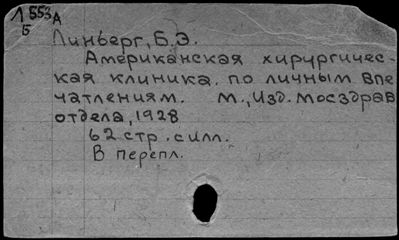 Л 553А
Б
Линберг, Б.Э.
Американская хирургичес-
кая клиника. по личным впе
чатлениям. М., Изд. Мосздрав
отдела, 1928
62 стр. с илл.
В перепл.